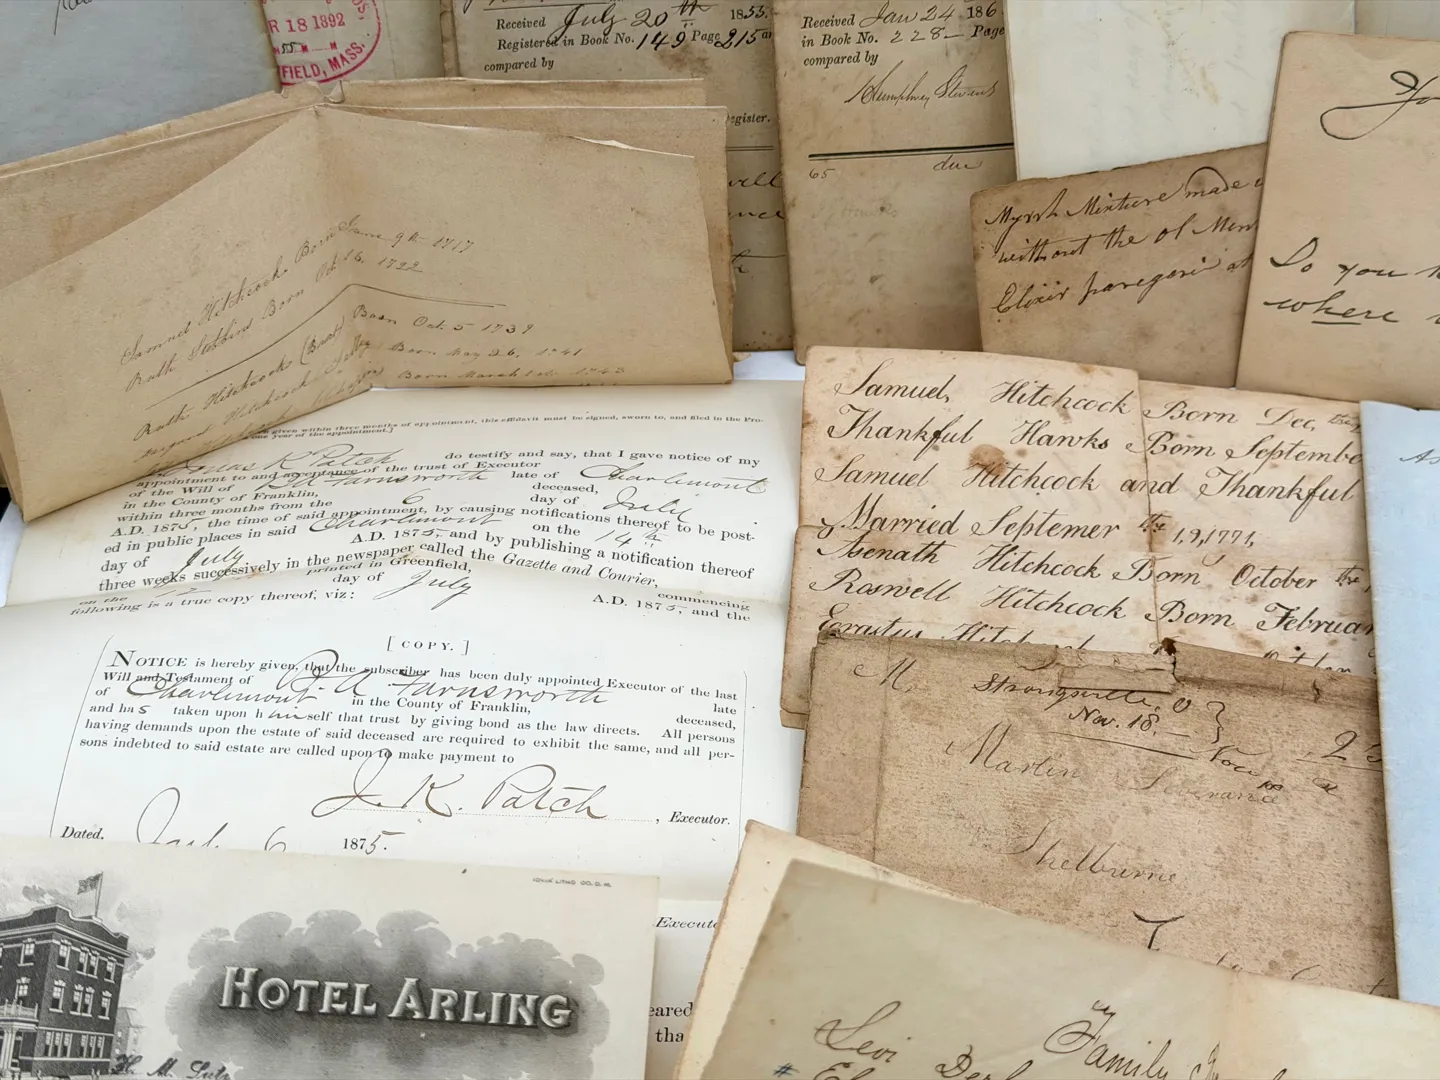 R 18 1892
FIELD, MASS.
Received July 20th 1855.
Registered in Book No. 149 Page 215
compared by
egister.
Received Jan 24 186
in Book No. 228 Page
compared by
Humphrey Stevens
65 due
Myrrh Mixture made
without the of
Elixir paregoric at
Do you
where
Samuel Hitchcock Born June 9th 1717
Ruth Stebbins Born Oct 16, 1722
Ruth Hitchcock (Burt) Born Oct. 5 1739
Hitchcock Born May 26, 1741
Born March 1743
given within three months of appointment, this affidavit must be signed, sworn to, and filed in the Pro-
one year of the appointment.]
K Patch do testify and say, that I gave notice of my
appointment to and acceptance of the trust of Executor
of the Will of Farnsworth late of Charlemont
in the County of Franklin, deceased,
within three months from the 6 day of July
A.D. 1875, the time of said appointment, by causing notifications thereof to be post-
ed in public places in said Charlemont on the 14th
day of July A.D. 1875, and by publishing a notification thereof
three weeks successively in the newspaper called the Gazette and Courier,
printed in Greenfield, commencing
on the day of July A.D. 1875, and the
following is a true copy thereof, viz:
[COPY.]
NOTICE is hereby given, that the subscriber has been duly appointed Executor of the last
Will and Testament of Farnsworth late
of Charlemont in the County of Franklin, deceased,
and has taken upon himself that trust by giving bond as the law directs. All persons
having demands upon the estate of said deceased are required to exhibit the same, and all per-
sons indebted to said estate are called upon to make payment to
J. K. Patch, Executor.
Dated, July 6 1875.
Samuel Hitchcock Born Dec, the
Thankful Hawks Born Septembe
Samuel Hitchcock and Thankful
Married Septemer the 19, 1771,
Asenath Hitchcock Born October the
Roswell Hitchcock Born Februar
Erastus Hitchcock
M. Strongsville, O
Nov. 18.
Martin Severance
Shelburne
HOTEL ARLING
H. M.
Execut
eared
tha
Levi
Family